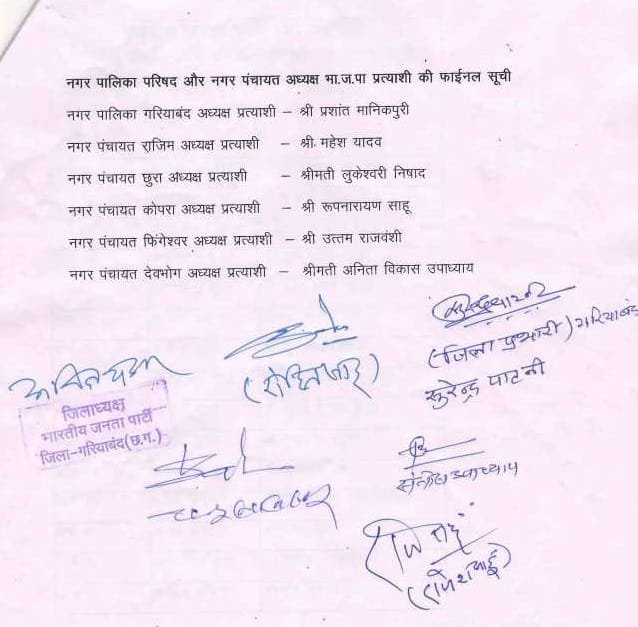 नगर पालिका परिषद और नगर पंचायत अध्यक्ष भा.ज.पा प्रत्याशी की फाईनल सूची
नगर पालिका गरियाबंद अध्यक्ष प्रत्याशी – श्री प्रशांत मानिकपुरी
नगर पंचायत राजिम अध्यक्ष प्रत्याशी – श्री. महेश यादव
नगर पंचायत छुरा अध्यक्ष प्रत्याशी – श्रीमती लुकेश्वरी निषाद
नगर पंचायत कोपरा अध्यक्ष प्रत्याशी – श्री रूपनारायण साहू
नगर पंचायत फिंगेश्वर अध्यक्ष प्रत्याशी – श्री उत्तम राजवंशी
नगर पंचायत देवभोग अध्यक्ष प्रत्याशी – श्रीमती अनिता विकास उपाध्याय
(जिला प्रभारी) गरियाबंद
सुरेन्द्र पाटनी
जिलाध्यक्ष
भारतीय जनता पार्टी
जिला-गरियाबंद(छ.ग.)